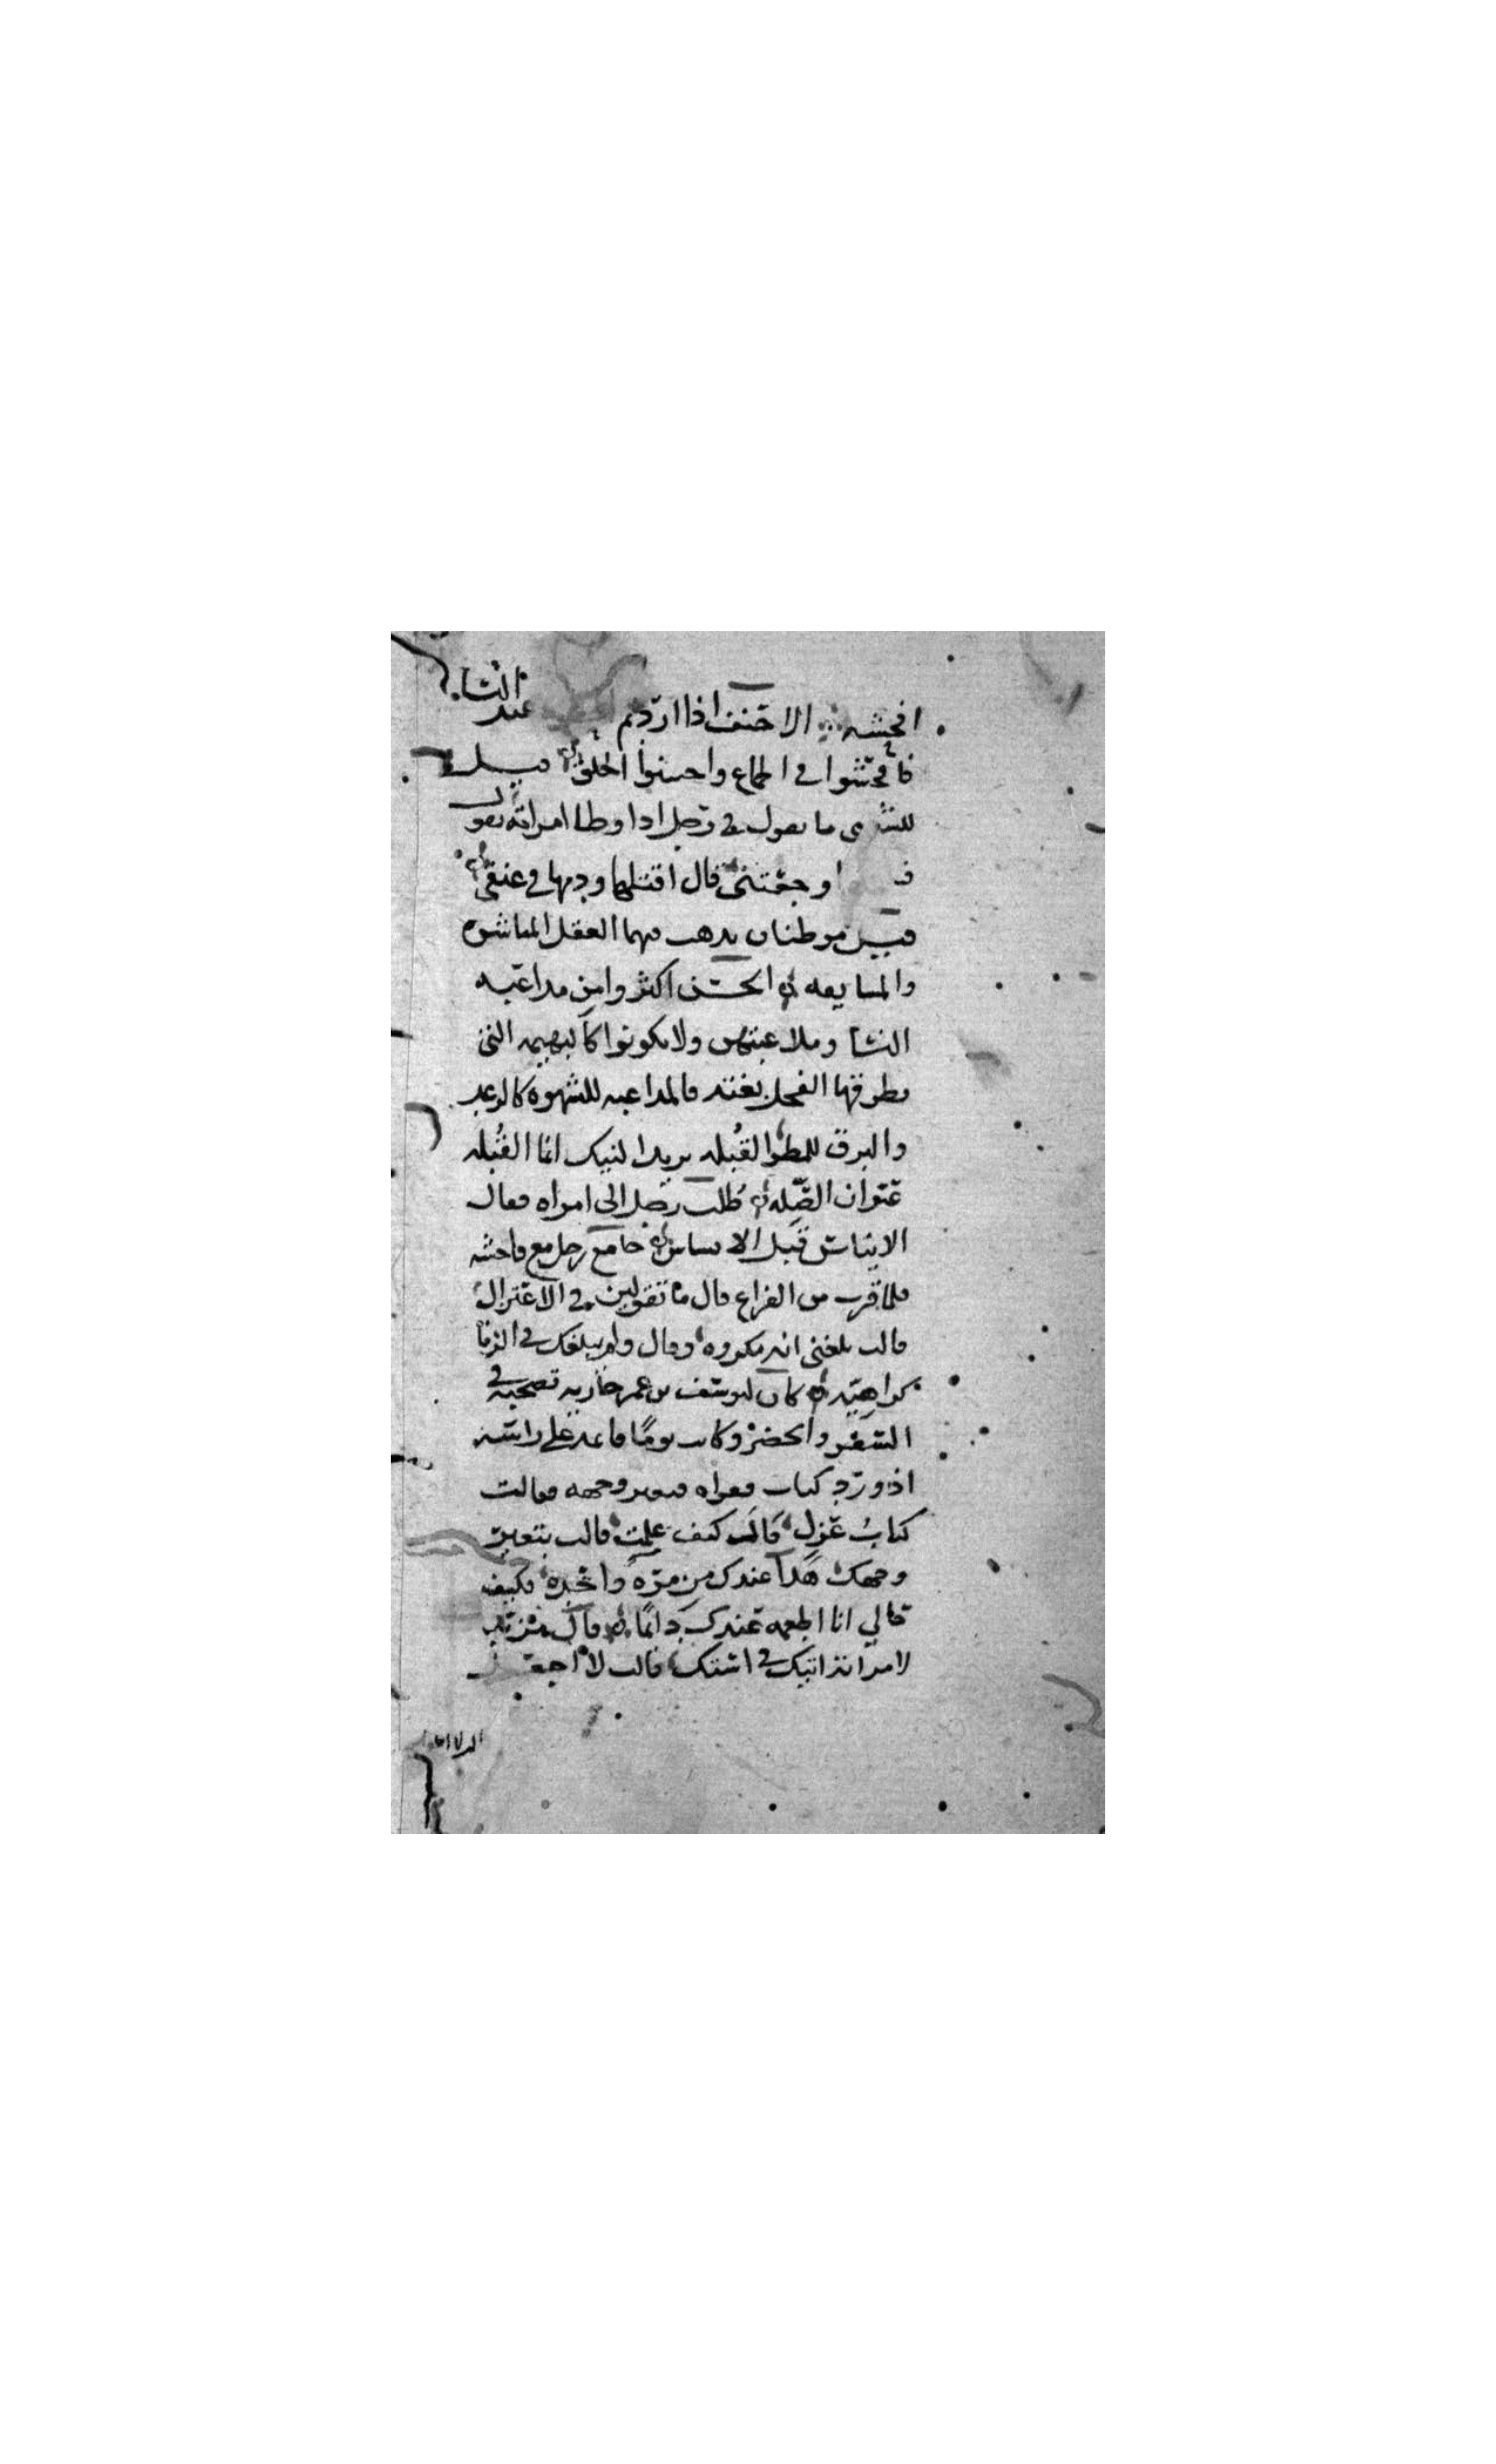 افحشه الاحنف اذا اردتم عند النسا
فافحشوا في الجماع واحسنوا الخلق قيل
للشعبى ما يقول في رجل اذا وطا امراته يقول
اوجعتنى قال اقتلها ودمها في عنقى
قيل موطنان يذهب فيهما العقل المباشره
والمسابقه الحسن اكثروا من مداعبه
النسا وملاعبتهن ولا يكونوا كالبهيمه التى
يطرقها الفحل بغته فالمداعبه للشهوه كالرعد
والبرق للمطر القبله بريد النيك انما القبله
عنوان الصله طلب رجل الى امراه فقال
الايناس قبل الابساس جامع رجل مع فاحشه
فلما قرب من الفراغ قال ما تقولين في الاعتزال
قالت بلغنى انه مكروه وقال ولم يبلغك في الزنا
كراهيته كان ليوسف بن عمر جاريه تصحبه في
السفر والحضر وكانت يوما قاعده على راسه
اذ ورد كتاب فقراه فتغير وجهه فقالت
كتاب عزل قال كيف علمت قالت بتغير
وجهك هذا عندك من مره واحده فكيف
حالي انا الجعمه عندك دائما قال مزبد
لامراته انيك في استك قالت لا اجعل